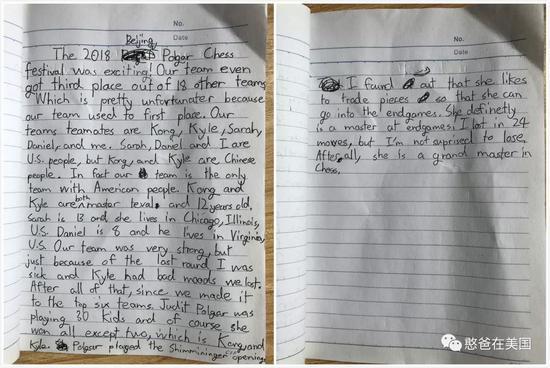 No.
Date
Beijing
The 2018 Polgar Chess
festival was exciting! Our team even
got third place out of 18 other teams.
Which is pretty unfortunater because
our team used to first place. Our
teams teamates are Kong, Kyle, Sarah,
Daniel, and me. Sarah, Daniel and I are
U.S. people, but Kong and Kyle are Chinese
people. In fact our team is the only
team with American people. Kong and
Kyle are both master leval, and 12 years old.
Sarah is 13 and she lives in Chicago, Illinois,
U.S. Daniel is 8 and he lives in Virginia,
U.S. Our team was very strong, but
just because of the last round I was
sick and Kyle had bad moods we lost.
After all of that, since we made it
to the top six teams. Judit Polgar was
playing 30 kids and of course she
won all except two, which is Kong and
Kyle. Polgar played the opening
No.
Date
I found out that she likes
to trade pieces so that she can
go into the endgames. She definetly
is a master at endgames. I lost in 24
moves, but I'm not suprised to lose.
After all, she is a grand master in
Chess.
憨爸在美国